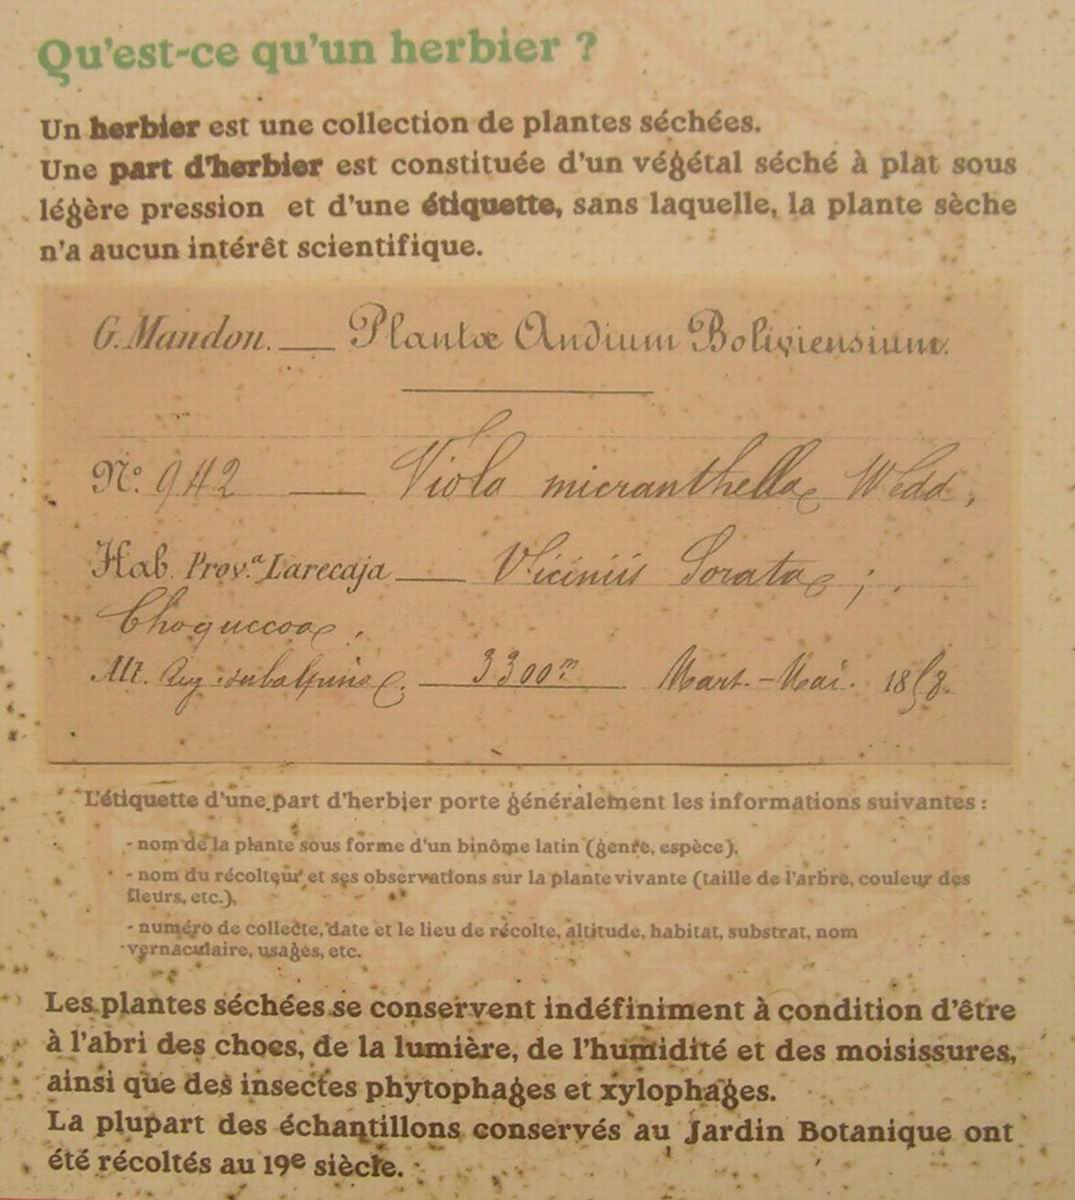 Qu'est-ce qu'un herbier ?
Un herbier est une collection de plantes séchées.
Une part d'herbier est constituée d'un végétal séché à plat sous
légère pression et d'une étiquette, sans laquelle, la plante sèche
n'a aucun intérêt scientifique.
G. Mandon. — Plantæ Andium Boliviensium.
N.º 942 — Viola micranthella Wedd.
Hab. Prov.ª Larecaja — Viciniis Sorata ;
Choquecoa.
Alt. Reg. subalpina. — 3300 m Mart. - Mai. 1858.
L'étiquette d'une part d'herbier porte généralement les informations suivantes :
- nom de la plante sous forme d'un binôme latin (genre, espèce),
- nom du récolteur et ses observations sur la plante vivante (taille de l'arbre, couleur des
fleurs, etc.),
- numéro de collecte, date et le lieu de récolte, altitude, habitat, substrat, nom
vernaculaire, usages, etc.
Les plantes séchées se conservent indéfiniment à condition d'être
à l'abri des chocs, de la lumière, de l'humidité et des moisissures,
ainsi que des insectes phytophages et xylophages.
La plupart des échantillons conservés au Jardin Botanique ont
été récoltés au 19e siècle.